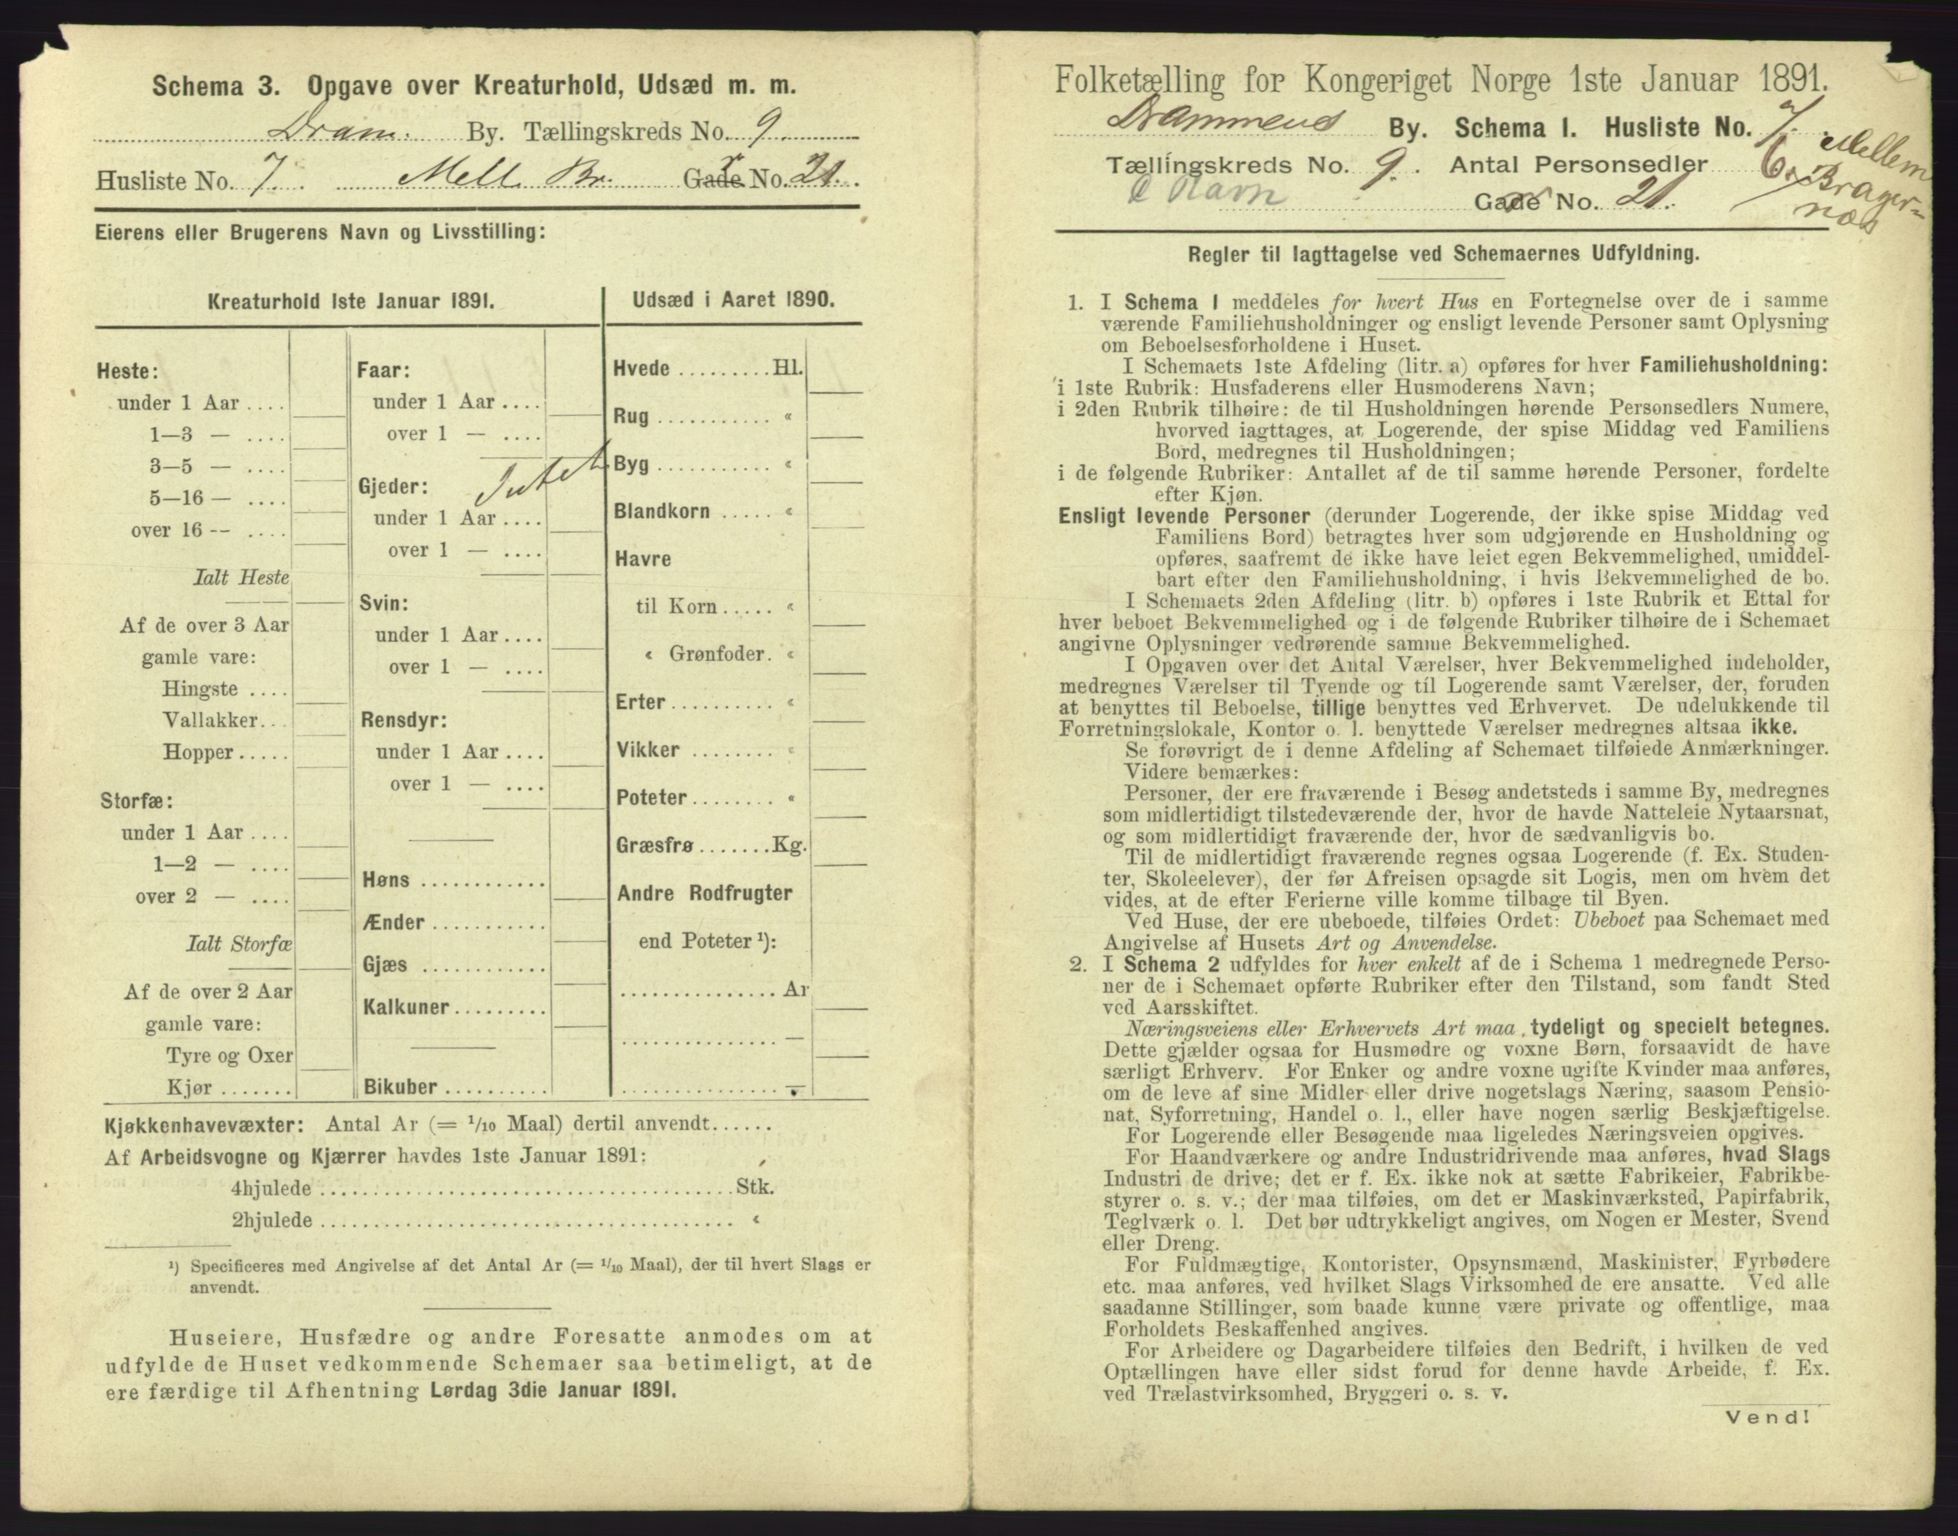 Schema 3. Opgave over Kreaturhold, Udsæd m. m.
Dram. By. Tællingskreds No. 9.
Husliste No. 7. Mell. Br. Gade No. 21.
Eierens eller Brugerens Navn og Livsstilling:
Kreaturhold 1ste Januar 1891.
Heste:
under 1 Aar ....
1—3 — ....
3—5 — ....
5—16 — ....
over 16 -- ....
Ialt Heste
Af de over 3 Aar
gamle vare:
Hingste ....
Vallakker...
Hopper.....
Storfæ:
under 1 Aar ....
1—2 — ....
over 2 — ....
Ialt Storfæ
Af de over 2 Aar
gamle vare:
Tyre og Oxer
Kjør .......
Faar:
under 1 Aar ....
over 1 — ....
Gjeder: Intet
under 1 Aar ....
over 1 — ....
Svin:
under 1 Aar ....
over 1 — ....
Rensdyr:
under 1 Aar ....
over 1 — ....
Høns ............
Ænder ...........
Gjæs ............
Kalkuner.........
Bikuber ..........
Udsæd i Aaret 1890.
Hvede ......... Hl.
Rug ........... «
Byg ........... «
Blandkorn ..... «
Havre
til Korn ..... «
« Grønfoder. «
Erter.......... «
Vikker ........ «
Poteter........ «
Græsfrø.......Kg.
Andre Rodfrugter
end Poteter ¹):
............... Ar
............... —
............... —
Kjøkkenhavevæxter: Antal Ar (= 1/10 Maal) dertil anvendt......
Af Arbeidsvogne og Kjærrer havdes 1ste Januar 1891:
4hjulede ..................................... Stk.
2hjulede ..................................... «
¹) Specificeres med Angivelse af det Antal Ar (= 1/10 Maal), der til hvert Slags er
anvendt.
Huseiere, Husfædre og andre Foresatte anmodes om at
udfylde de Huset vedkommende Schemaer saa betimeligt, at de
ere færdige til Afhentning Lørdag 3die Januar 1891.
Folketælling for Kongeriget Norge 1ste Januar 1891.
Drammens By. Schema 1. Husliste No. 7.
Tællingskreds No. 9. Antal Personsedler 6. Mellem
Havn Gade No. 21. Brager=
næs
Regler til Iagttagelse ved Schemaernes Udfyldning.
1. I Schema 1 meddeles for hvert Hus en Fortegnelse over de i samme
værende Familiehusholdninger og ensligt levende Personer samt Oplysning
om Beboelsesforholdene i Huset.
I Schemaets 1ste Afdeling (litr. a) opføres for hver Familiehusholdning:
i 1ste Rubrik: Husfaderens eller Husmoderens Navn;
i 2den Rubrik tilhøire: de til Husholdningen hørende Personsedlers Numere,
hvorved iagttages, at Logerende, der spise Middag ved Familiens
Bord, medregnes til Husholdningen;
i de følgende Rubriker: Antallet af de til samme hørende Personer, fordelte
efter Kjøn.
Ensligt levende Personer (derunder Logerende, der ikke spise Middag ved
Familiens Bord) betragtes hver som udgjørende en Husholdning og
opføres, saafremt de ikke have leiet egen Bekvemmelighed, umiddel-
bart efter den Familiehusholdning, i hvis Bekvemmelighed de bo.
I Schemaets 2den Afdeling (litr. b) opføres i 1ste Rubrik et Ettal for
hver beboet Bekvemmelighed og i de følgende Rubriker tilhøire de i Schemaet
angivne Oplysninger vedrørende samme Bekvemmelighed.
I Opgaven over det Antal Værelser, hver Bekvemmelighed indeholder,
medregnes Værelser til Tyende og til Logerende samt Værelser, der, foruden
at benyttes til Beboelse, tillige benyttes ved Erhvervet. De udelukkende til
Forretningslokale, Kontor o. l. benyttede Værelser medregnes altsaa ikke.
Se forøvrigt de i denne Afdeling af Schemaet tilføiede Anmærkninger.
Videre bemærkes:
Personer, der ere fraværende i Besøg andetsteds i samme By, medregnes
som midlertidigt tilstedeværende der, hvor de havde Natteleie Nytaarsnat,
og som midlertidigt fraværende der, hvor de sædvanligvis bo.
Til de midlertidigt fraværende regnes ogsaa Logerende (f. Ex. Studen-
ter, Skoleelever), der før Afreisen opsagde sit Logis, men om hvem det
vides, at de efter Ferierne ville komme tilbage til Byen.
Ved Huse, der ere ubeboede, tilføies Ordet: Ubeboet paa Schemaet med
Angivelse af Husets Art og Anvendelse.
2. I Schema 2 udfyldes for hver enkelt af de i Schema 1 medregnede Perso-
ner de i Schemaet opførte Rubriker efter den Tilstand, som fandt Sted
ved Aarsskiftet.
Næringsveiens eller Erhvervets Art maa tydeligt og specielt betegnes.
Dette gjælder ogsaa for Husmødre og voxne Børn, forsaavidt de have
særligt Erhverv. For Enker og andre voxne ugifte Kvinder maa anføres,
om de leve af sine Midler eller drive nogetslags Næring, saasom Pensio-
nat, Syforretning, Handel o. l., eller have nogen særlig Beskjæftigelse.
For Logerende eller Besøgende maa ligeledes Næringsveien opgives.
For Haandværkere og andre Industridrivende maa anføres, hvad Slags
Industri de drive; det er f. Ex. ikke nok at sætte Fabrikeier, Fabrikbe-
styrer o. s. v.; der maa tilføies, om det er Maskinværksted, Papirfabrik,
Teglværk o. l. Det bør udtrykkeligt angives, om Nogen er Mester, Svend
eller Dreng.
For Fuldmægtige, Kontorister, Opsynsmænd, Maskinister, Fyrbødere
etc. maa anføres, ved hvilket Slags Virksomhed de ere ansatte. Ved alle
saadanne Stillinger, som baade kunne være private og offentlige, maa
Forholdets Beskaffenhed angives.
For Arbeidere og Dagarbeidere tilføies den Bedrift, i hvilken de ved
Optællingen have eller sidst forud for denne havde Arbeide, f. Ex.
ved Trælastvirksomhed, Bryggeri o. s. v.
Vend!